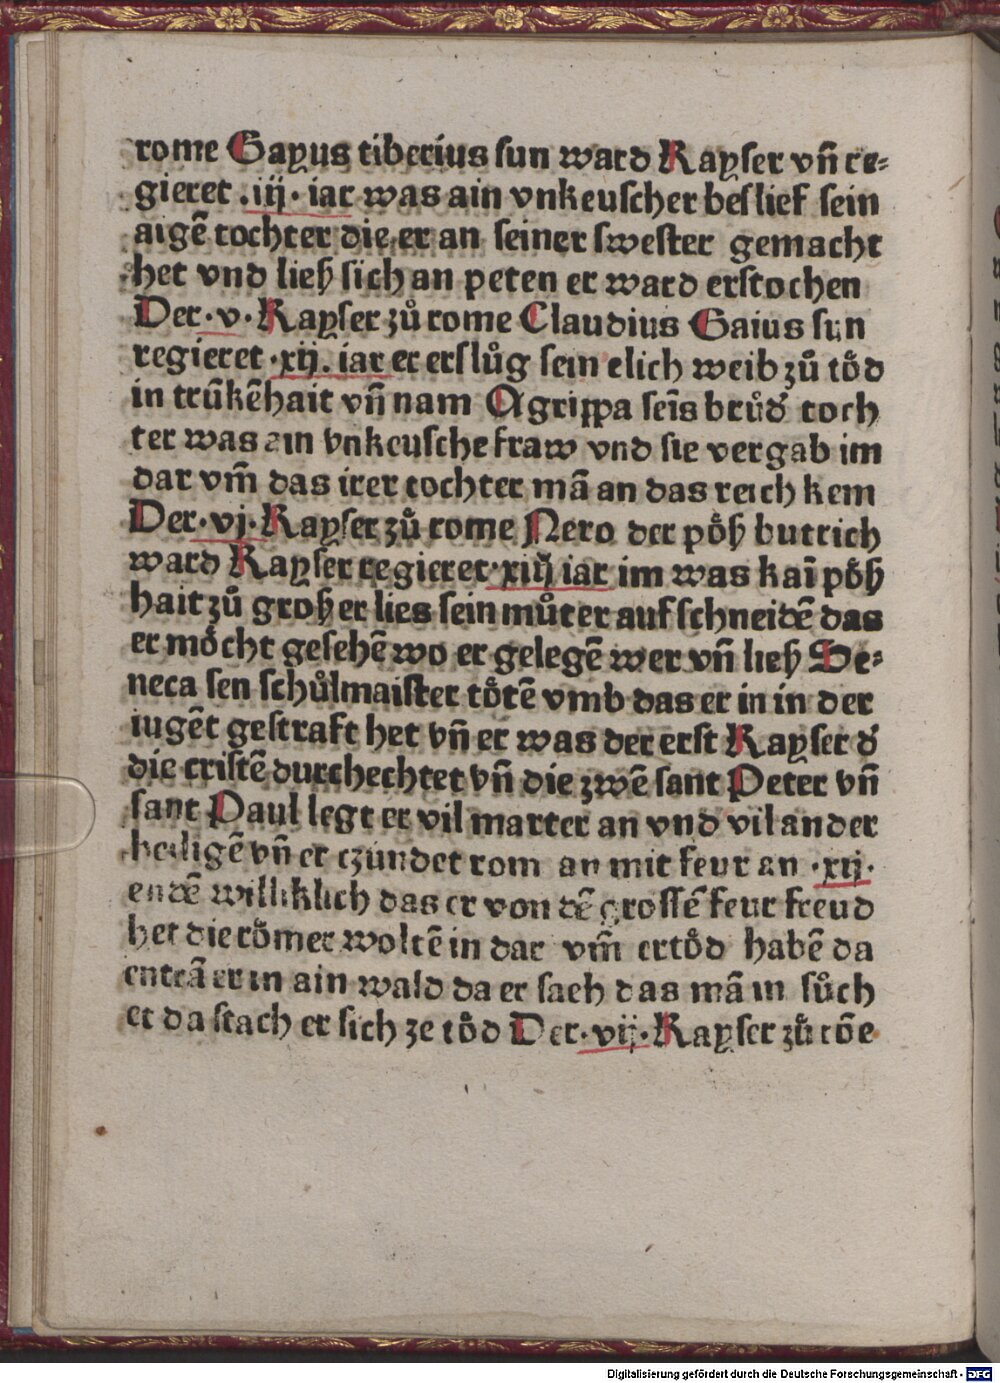 rome Gayus tiberius sun ward Kayser vn̄ re⸗
gieret .iij. iar was ain vnkeuscher beslief sein
aigē tochter die er an seiner swester gemacht
het vnd ließ sich an peten er ward erstochen
Der .v. Kayser zů rome Claudius Gaius sun
regieret .xij. iar er erslůg sein elich weib zů tôd
in trūkēhait vn̄ nam Agrippa seīs brůd' toch
ter was ain vnkeusche fraw vnd sie vergab im
dar vm̄ das irer tochter mā an das reich kem
Der .vj. Kayser zů rome Nero der pôß buttrich
ward Kayser regieret .xiiij iar im was kaī pôß
hait zů groß er lies sein můter auf schneidē das
er môcht gesehē wo er gelegē wer vn̄ ließ Se⸗
neca sen schůlmaister tôtē vmb das er in in der
iugēt gestraft het vn̄ er was der erst Kayser d'
die cristē durchechtet vn̄ die zwē sant Peter vn̄
sant Paul legt er vil marter an vnd vil ander
heiligē vn̄ er czundet rom an mit feur an .xij.
endē williklich das er von dē grossē feur freud
het die rômer woltē in dar vm̄ ertôd habē da
entrā er in ain wald da er sach das mā in sůch
et da stach er sich ze tôd Der .vij. Kayser zů rōe
Digitalisierung gefördert durch die Deutsche Forschungsgemeinschaft - DFG